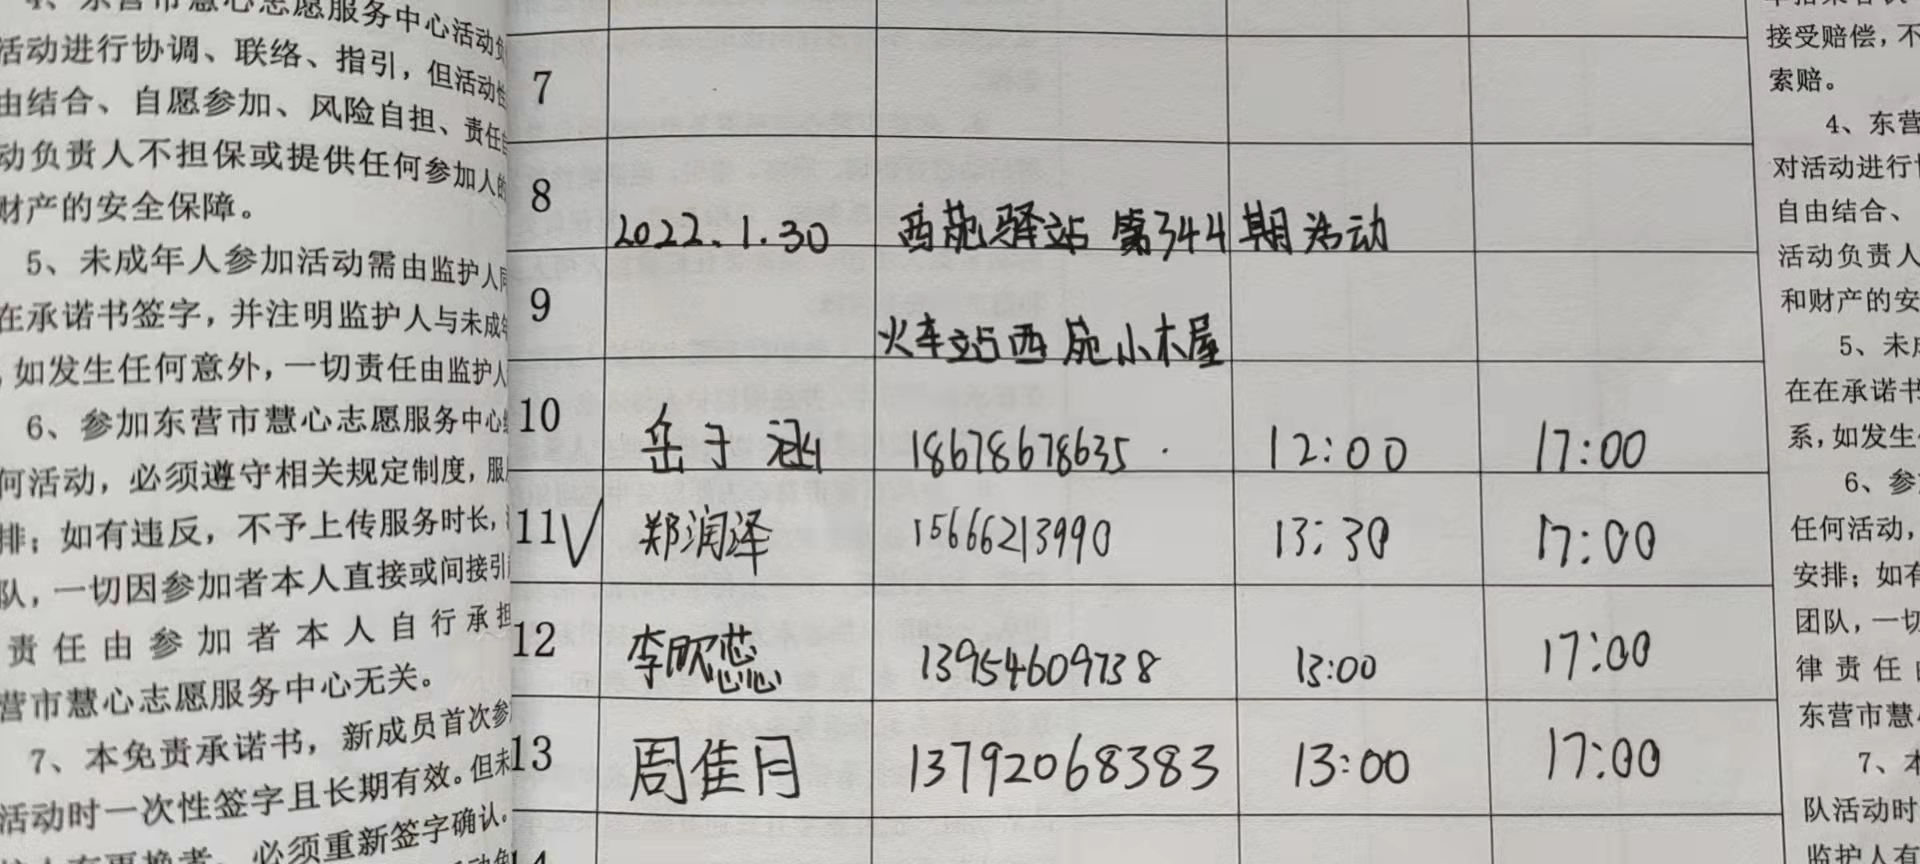 4、东营市慧心志愿服务中心活动
活动进行协调、联络、指引，但活动
由结合、自愿参加、风险自担、责任
动负责人不担保或提供任何参加人的
财产的安全保障。
5、未成年人参加活动需由监护人同
在承诺书签字，并注明监护人与未成年
，如发生任何意外，一切责任由监护人
6、参加东营市慧心志愿服务中心
何活动，必须遵守相关规定制度，服
排；如有违反，不予上传服务时长，
队，一切因参加者本人直接或间接引
责任由参加者本人自行承担
营市慧心志愿服务中心无关。
7、本免责承诺书，新成员首次参
活动时一次性签字且长期有效。但未
必须重新签字确认。
7
8
2022.1.30 西苑驿站 第344期活动
9
火车站西苑小木屋
10 岳于涵 18678678635 12:00 17:00
11 √ 郑润泽 15666213990 13:30 17:00
12 李欣蕊 13954609738 13:00 17:00
13 周佳月 13792068383 13:00 17:00
14
接受赔偿，不
索赔。
4、东营
对活动进行
自由结合、
活动负责人
和财产的安
5、未成
在在承诺书
系，如发生
6、参
任何活动，
安排；如有
团队，一切
律责任由
东营市慧
7、本
队活动时
监护人有